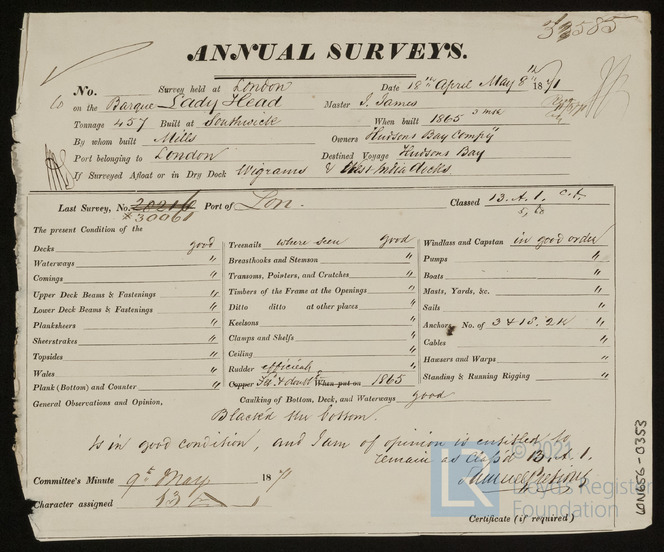 32585
ANNUAL SURVEYS.
No. Survey held at London Date 18th April May 8th 1871
on the Barque Lady Head Master J. James
Tonnage 457 Built at Southwick When built 1865 3 mo
By whom built Mills Owners "Hudsons Bay Compy"
Port belonging to London Destined Voyage Hudsons Bay
If Surveyed Afloat or in Dry Dock Wigrams & West India docks
Last Survey, No. 20216 Port of Lon. Classed 13. A. 1.
30061
The present Condition of the
Decks good
Waterways "
Comings "
Upper Deck Beams & Fastenings "
Lower Deck Beams & Fastenings "
Planksheers "
Sheerstrakes "
Topsides "
Wales "
Plank (Bottom) and Counter "
Treenails where seen good
Breasthooks and Stemson "
Transoms, Pointers, and Crutches "
Timbers of the Frame at the Openings "
Ditto ditto at other places "
Keelsons "
Clamps and Shelfs "
Ceiling "
Rudder efficient "
Copper When put on 1865
Windlass and Capstan in good order
Pumps "
Boats "
Masts, Yards, &c. "
Sails "
Anchors No. of 3 & 1S. 2K "
Cables "
Hawsers and Warps "
Standing & Running Rigging "
General Observations and Opinion, Caulking of Bottom, Deck, and Waterways good
Black'd the bottom.
Is in good condition, and I am of opinion is entitled to
remain as Class'd 13. A. 1.
Committee's Minute 9th May 1871
Character assigned 13 A 1
Certificate (if required)
LR
© 2021
Lloyd's Register
Foundation
LON656-0353